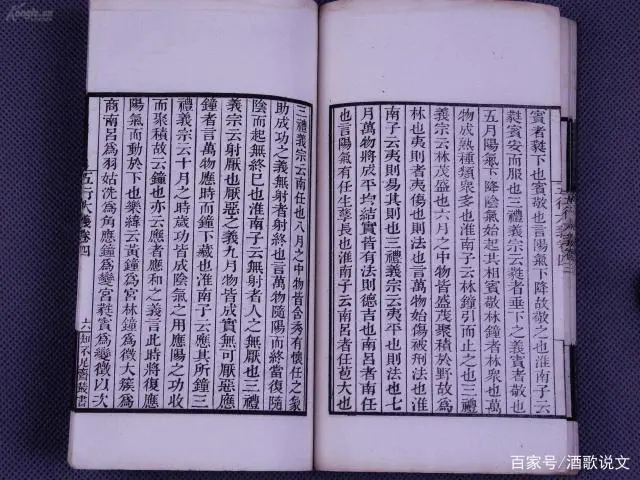 賓者蕤下也賓敬也言陽氣下降故敬之也淮南子云
蕤賓安而服也三禮義宗云蕤者垂下之義賓者敬也
五月陽氣下降陰氣始起共相賓敬林鍾林衆也萬
物成熟種類衆多也淮南子云林鍾引而止之也三禮
義宗云林茂盛也六月之中物皆盛茂聚積於野故爲
林也夷則者夷傷也則法也言萬物始傷被刑法也淮
南子云夷則易其則也三禮義宗云夷平也則法也七
月萬物將成平均結實皆有法則德吉也南呂者南任
也言陽氣有任生孳長也淮南子云南呂者任苞大也
三禮義宗云南任也八月之中物皆含秀有懷任之象
助成功之義無射者射終也言萬物隨陽而終當復隨
陰而起無終已也淮南子云無射者人之無厭也三禮
義宗云射厭也厭惡之義九月物皆成實無可厭惡應
鍾者言萬物應時而鍾下藏也淮南子云應其所鍾三
禮義宗云十月之時歲功皆成陰氣之用應陽之功收
而聚積故云鍾也亦云應者應和之義言此時將復應
陽氣而動於下也樂緯云黃鍾爲宮林鍾爲徵大蔟爲
商南呂爲羽姑洗爲角應鍾爲變宮蕤賓爲變徵以次
五行大義卷四
六 知不足齋叢書
百家号/酒歌说文